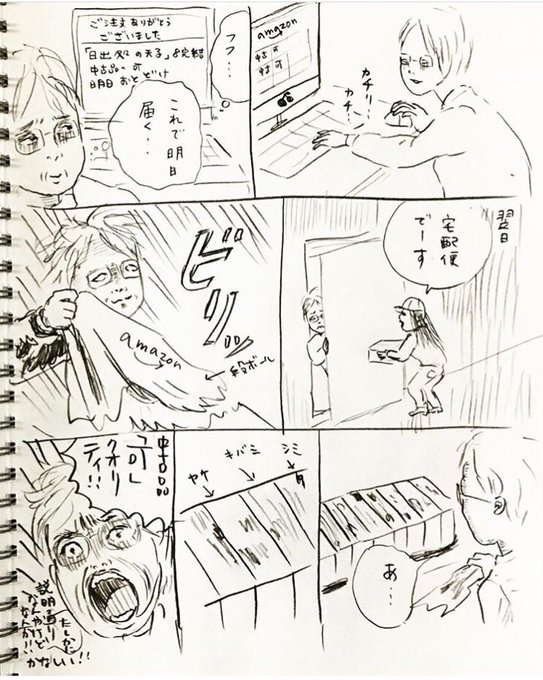 amazon
中古 可
中古 可
カチリ…
カチ…
フフ…
ご注文ありがとう
ございました
「日出処の天子」8完結
中古品 可
明日おとどけ
これで明日
届く…
翌日
宅配便
でーす
ビリッ
amazon
段ボール
あ…
シミ
キバミ
ヤケ
中古品
「可」
クオリ
ティ!!
たしかに
説明通り
なんやけど
なんか!!
かなしい!!